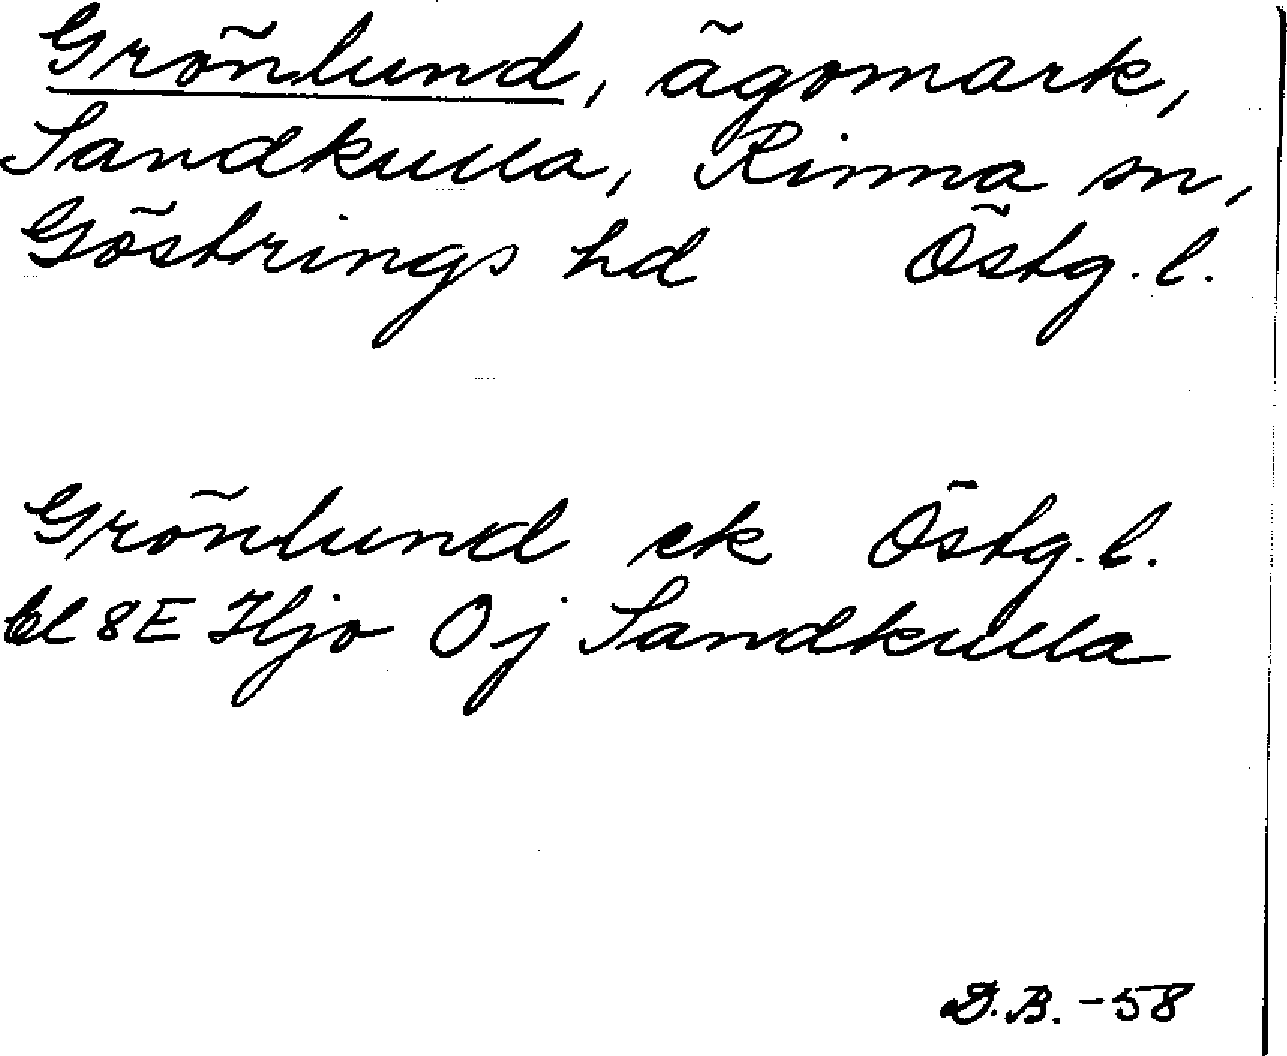 Grönlund, ägomark,
Sandkulla, Rinna sn,
Göstrings hd Östg. l.
Grönlund ek Östg. l.
bl 8E Hjo 0j Sandkulla
D.B. -58